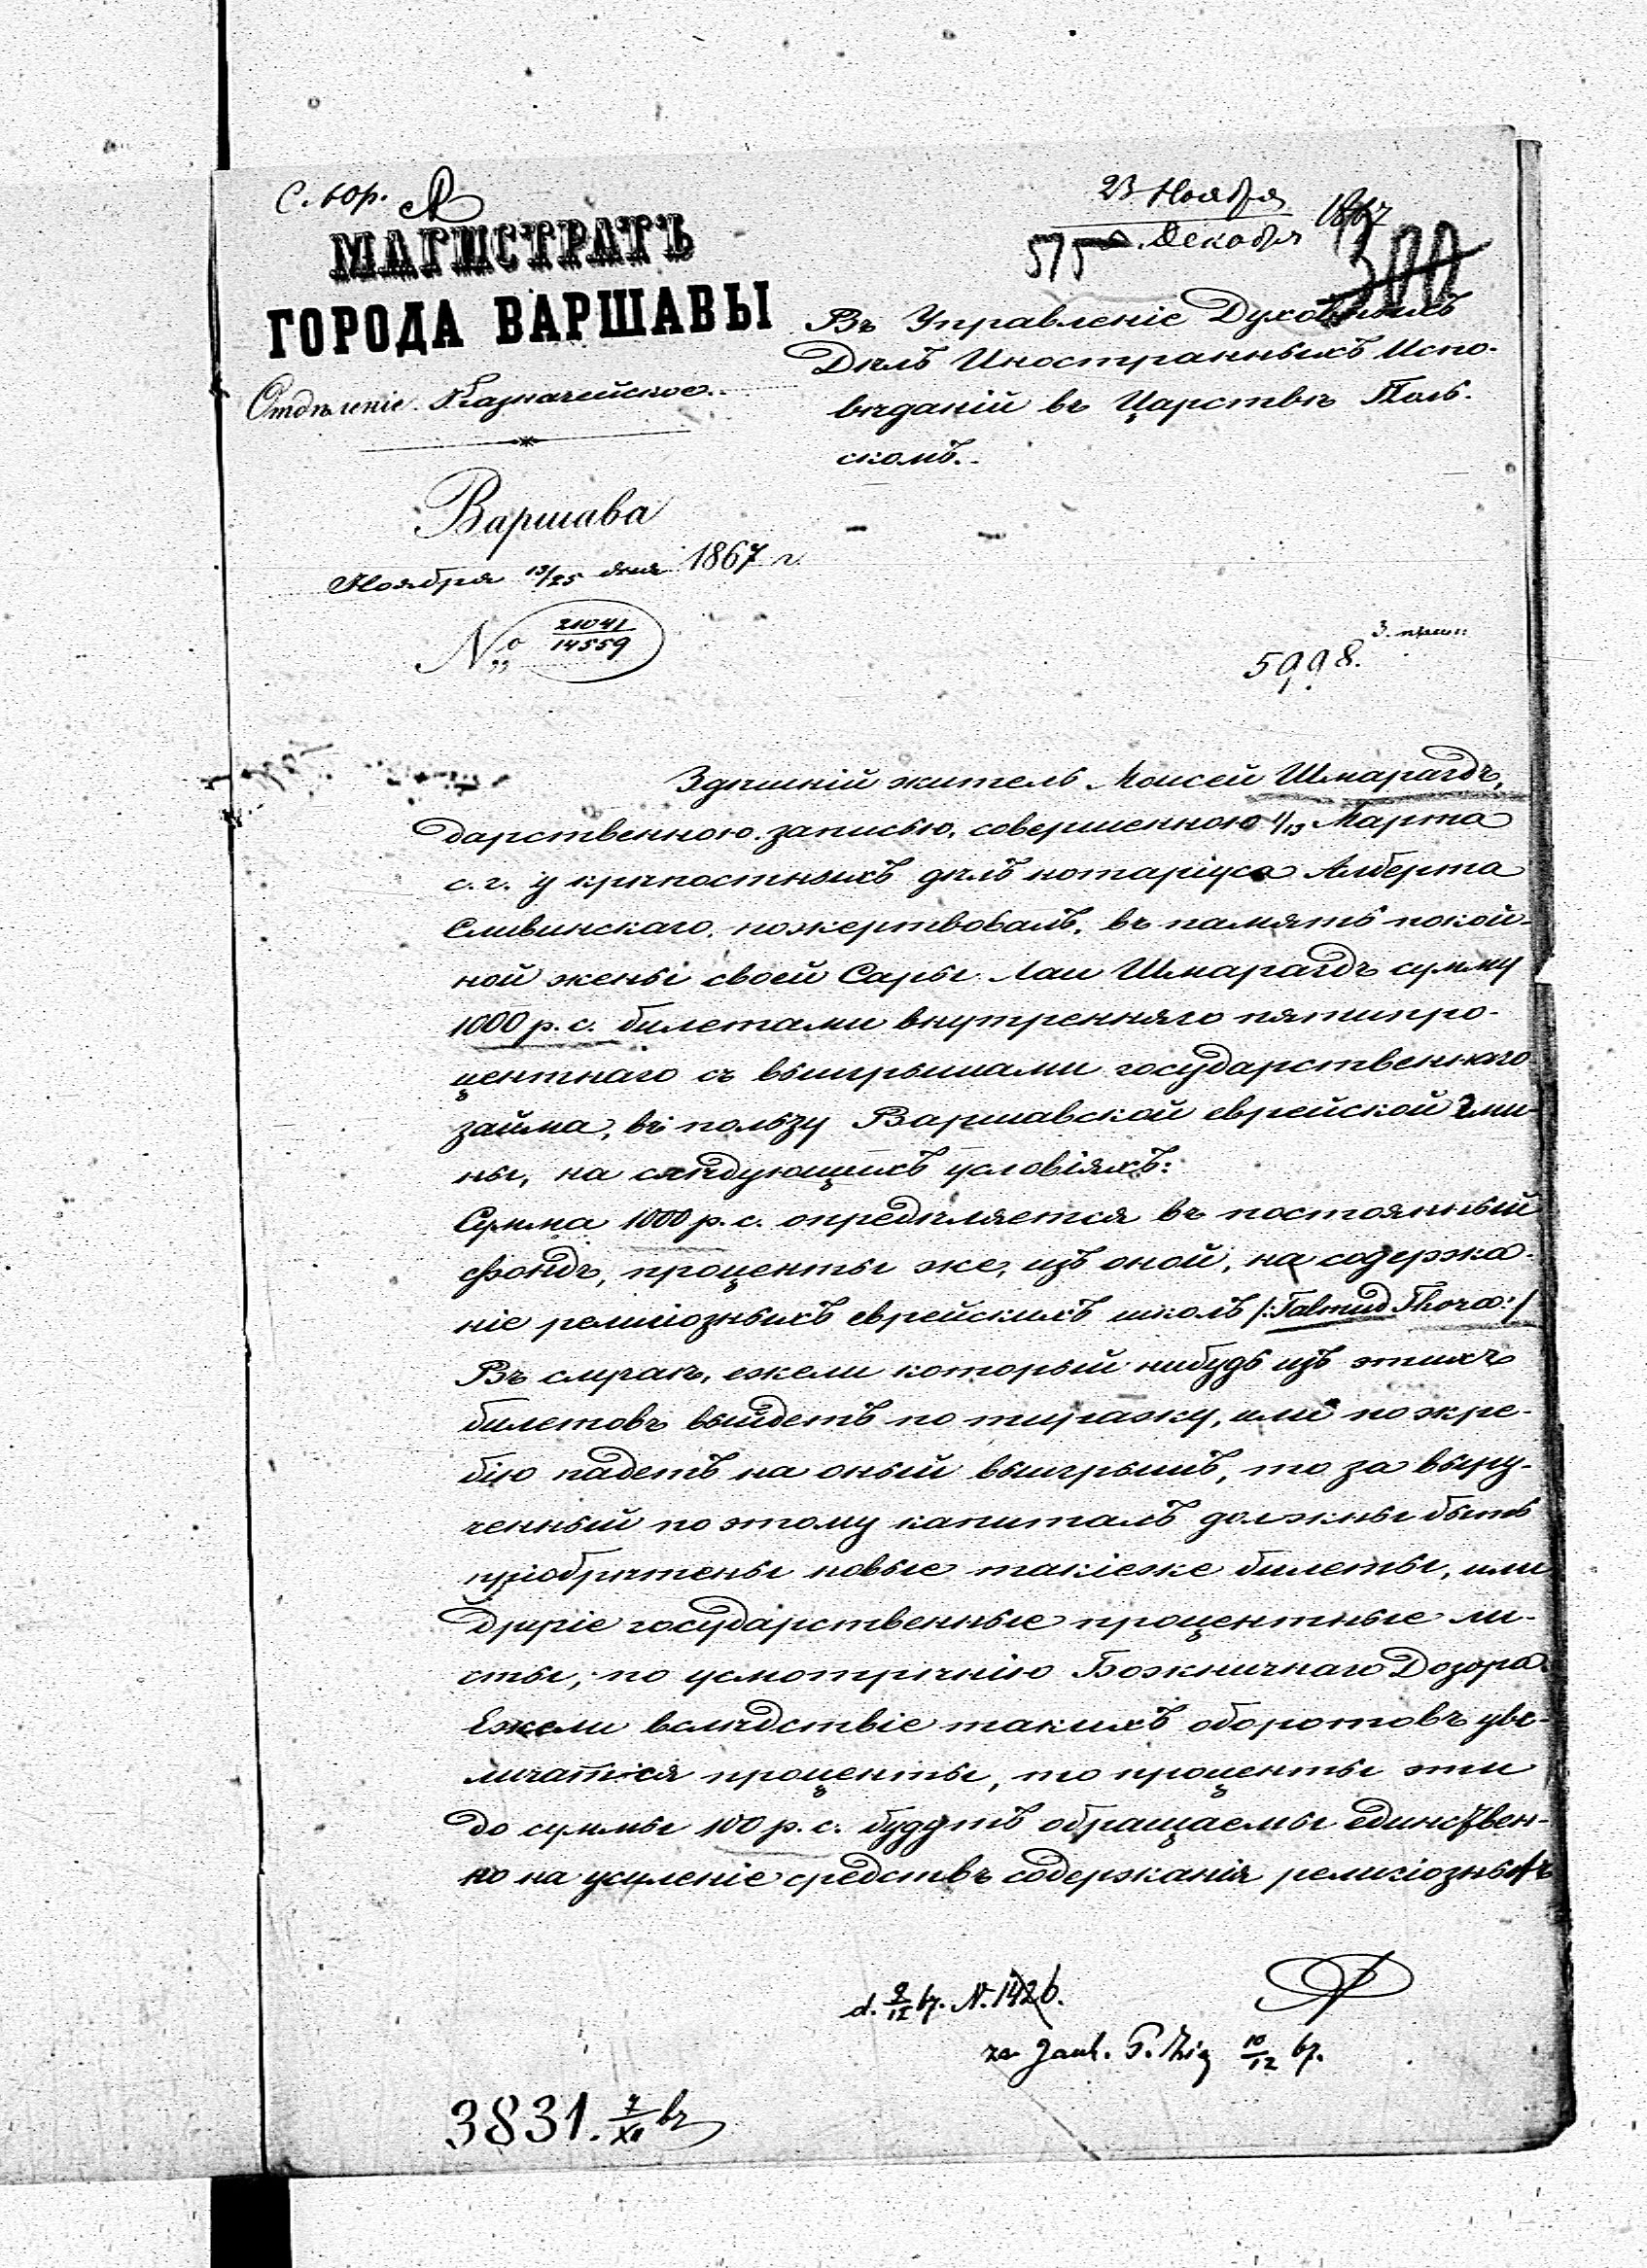 С. Юр.
23 Ноября
5 Декабря 1867
575
300
МАГИСТРАТЪ
ГОРОДА ВАРШАВЫ
Отдѣленіе Казначейское.
Варшава
Ноября 13/25 дня 1867 г.
№ 21041/14559
Въ Управленіе Духовныхъ
Дѣлъ Иностранныхъ Испо-
вѣданій въ Царствѣ Поль-
скомъ.
5998.
Здѣшній житель Моисей Шмарагдъ,
дарственною записью, совершенною 1/13 Марта
с. г. у крѣпостныхъ дѣлъ нотаріуса Алберта
Сливинскаго, пожертвовалъ, въ память покой-
ной жены своей Сары Лаи Шмарагдъ сумму
1000 р. с. билетами внутренняго пятипро-
центнаго съ выигрышами государственнаго
займа, въ пользу Варшавской еврейской гми-
ны, на слѣдующихъ условіяхъ:
Сумма 1000 р. с. опредѣляется въ постоянный
фондъ, проценты же, изъ оной, на содержа-
ніе религіозныхъ еврейскихъ школъ /:Talmud Thora:/
Въ случаѣ, ежели который нибудь изъ этихъ
билетовъ выйдетъ по тиражу, или по жре-
бію падетъ на оный выигрышъ, то за выру-
ченный по этому капиталъ должны быть
пріобрѣтены новые такіеже билеты, или
другіе государственные процентные ли-
сты, по усмотрѣнію Божничнаго Дозора.
Ежели вслѣдствіе такихъ оборотовъ уве-
личатся проценты, то проценты эти
до суммы 100 р. с. будутъ обращаемы единствен-
но на усиленіе средствъ содержанія религіозныхъ
d. 9/12 67. N. 1426.
10/12 67.
3831. 7/XII